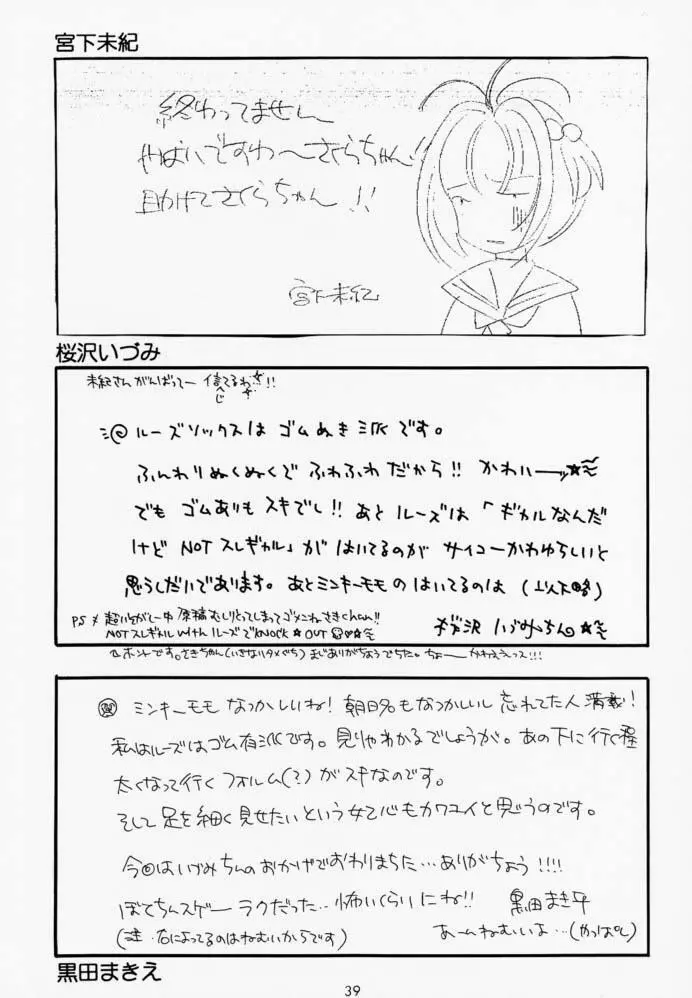 宮下未紀
終わってません
やばいですわ〜さくらちゃん!!
助けてさくらちゃん!!
宮下未紀
桜沢いづみ
未紀さんがんばってー信じてるわ!!
ルーズソックスはゴムぬき派です。
ふんわりぬくぬくでふわふわだから!!かわいーッ☆
でもゴムありもスキでし!!あとルーズは「ギャルなんだ
けどNOTスレギャル」がはいてるのがサイコーかわゆらしいと
思うしだいであります。あとミンキーモモのはいてるのは(以下略)
桜沢いづみちん☆
PS 超いそがしー中原稿むしりとってしまってゴメンねさきchan!!
NOTスレギャルwithルーズでKNOCK☆OUT
ホントです。さきちゃん(いきなりタメぐち)まじありがちょうでちた。ちょー
ミンキーモモなつかしいね!朝日名もなつかしいし忘れてた人満載!
私はルーズはゴム有派です。見りゃわかるでしょうが。あの下に行く程
太くなって行くフォルム(?)がスキなのです。
そして足を細く見せたいという女心もカワユイと思うのです。
今回はいづみちんのおかげでおわりまちた…ありがちょう!!!!
ぽてちんスゲーラクだった…怖いくらいにね!!
黒田まき平
(注・右によってるのはねむいからです)
あームねむいよ…(やっぱし)
黒田まきえ
39